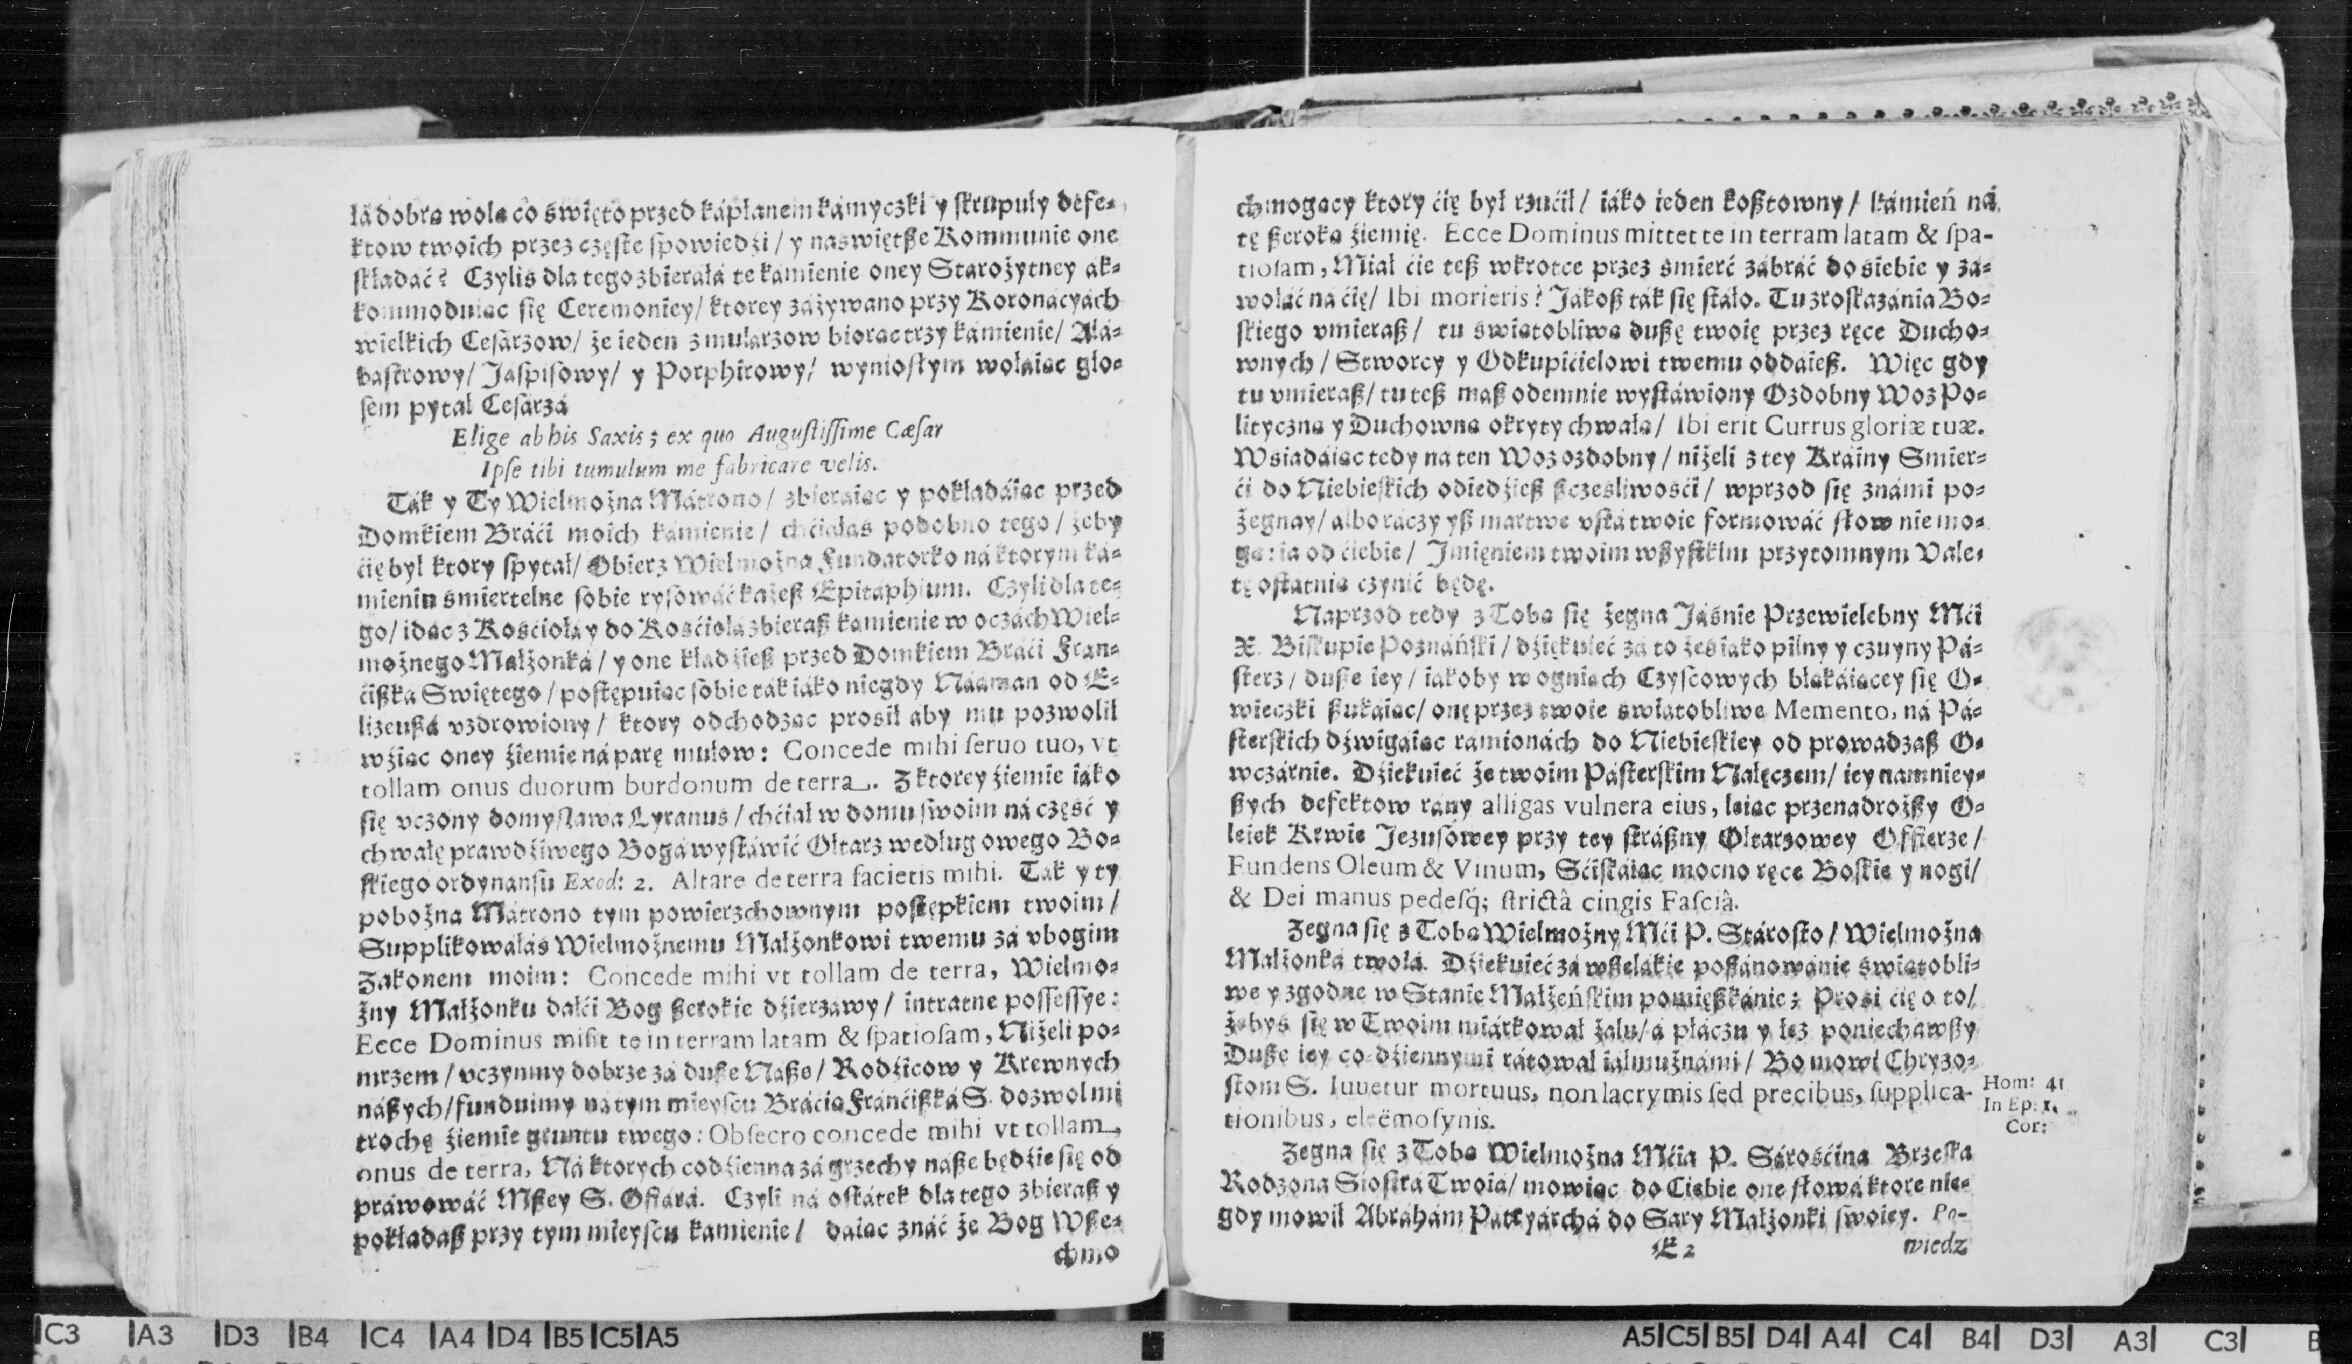 łá dobrą wolą co święto przed kápłanem kámyczki y skrupuły defe-
ktow twoich przez częste spowiedźi / y naświętsze Kommunie one
składáć? Czyliś dla tego zbierałá te kámienie oney Stárożytney ak-
kommoduiąc się Ceremoniey / ktorey záżywano przy Koronácyách
wielkich Cesárzow / że ieden z mularzow biorąc trzy kámienie / Alá-
bastrowy / Jáspisowy / y Porphirowy / wyniosłym wołáiąc gło-
sem pytał Cesárzá
Elige ab his Saxis; ex quo Augustissime Cæsar
Ipse tibi tumulum me fabricare velis.
Ták y Ty Wielmożna Mátrono / zbieráiąc y pokładáiąc przed
Domkiem Bráći moich kámienie / chćiáłáś podobno tego / żeby
ćię był ktory spytał / Obierz Wielmożna Fundatorko ná ktorym ká-
mieniu śmiertelne sobie rysowáć każesz Epitáphium. Czyli dla te-
go / idąc z Kośćiołá y do Kośćiołá zbierasz kámienie w oczách Wiel-
możnego Małżonká / y one kładźiesz przed Domkiem Bráći Fran-
ćiszká Swiętego / postępuiąc sobie ták iáko niegdy Náaman od E-
lizeuszá vzdrowiony / ktory odchodząc prosił aby mu pozwolił
wźiąć oney źiemie ná parę mułow: Concede mihi seruo tuo, vt
tollam onus duorum burdonum de terra. Z ktorey źiemie iáko
się vczony domyslawa Lyranus / chćiał w domu swoim ná część y
chwałę prawdźiwego Bogá wystáwić Ołtarz według owego Bo-
skiego ordynansu Exod: 2. Altare de terra facietis mihi. Ták y ty
pobożna Mátrono tym powierzchownym postępkiem twoim /
Supplikowáłáś Wielmożnemu Małżonkowi twemu zá vbogim
Zakonem moim: Concede mihi vt tollam de terra, Wielmo-
żny Małżonku dałći Bog szerokie dźierżawy / intratne possessye:
Ecce Dominus misit te in terram latam & spatiosam, Niżeli po-
mrzem / vczyńmy dobrze zá dusze Násze / Rodźicow y Krewnych
nászych / funduimy ná tym mieyscu Bráćią Fránćiszká S. dozwol mi
trochę źiemie gruntu twego: Obsecro concede mihi vt tollam
onus de terra, Ná ktorych codźienna zá grzechy násze będźie się od
práwowáć Mszey S. Ofiárá. Czyli ná ostátek dla tego zbierasz y
pokładasz przy tym mieyscu kámienie / dáiąc znáć że Bog Wsze-
chmo
chmogący ktory ćię był rzućił / iáko ieden kosztowny / kámień ná
tę szeroką źiemię. Ecce Dominus mittet te in terram latam & spa-
tiosam, Miał ćie tesz wkrotce przez śmierć zábráć do siebie y zá-
wołáć ná ćię / Ibi morieris? Jákosz ták się stáło. Tu z roskazánia Bo-
skiego vmierasz / tu świątobliwą duszę twoię przez ręce Ducho-
wnych / Stworcy y Odkupićielowi twemu oddáiesz. Więc gdy
tu vmierasz / tu tesz masz odemnie wystáwiony Ozdobny Woz Po-
lityczną y Duchowną okryty chwałą / Ibi erit Currus gloriæ tuæ.
Wsiadáiąc tedy na ten Woz ozdobny / niżeli z tey Kráiny Smier-
ći do Niebieskich odiedźiesz szczesliwośći / wprzod się z námi po-
żegnay / albo ráczy ysz martwe vstá twoie formowáć słow nie mo-
gą: ia od ćiebie / Jmięniem twoim wszystkim przytomnym Vale-
tę ostatnią czynić będę.
Naprzod tedy z Tobą się żegna Jáśnie Przewielebny Mći
X. Biskupie Poznáński / dźiękuieć zá to żeś iáko pilny y czuyny Pá-
sterz / dusze iey / iákoby w ogniách Czyscowych błąkáiącey się O-
wieczki szukáiąc / onę przez twoie świątobliwe Memento, ná Pá-
sterskich dźwigáiąc rámionách do Niebieskiey od prowadzasz O-
wczárnie. Dźiekuieć że twoim Pásterskim Nałęczem / iey namniey-
szych defektow rány alligas vulnera eius, leiąc przenadroższy O-
leiek Krwie Jezusowey przy tey strászny Ołtarzowey Offierze /
Fundens Oleum & Vinum, Sćiskáiąc mocno ręce Boskie y nogi /
& Dei manus pedesq́; strictâ cingis Fasciâ.
Zegna się z Tobą Wielmożny Mći P. Stárosto / Wielmożna
Małżonká twoiá. Dźiekuieć zá wszelákie poszánowánie świątobli-
we y zgodne w Stanie Małżeńskim pomięszkánie: Prosi ćię o to /
żebyś się w Twoim miárkował żalu / á płáczu y łez poniechawszy
Dusze iey co-dźiennymi rátował iałmużnámi / Bo mowi Chryzo-
stom S. Iuuetur mortuus, non lacrymis sed precibus, supplica-
tionibus, eleëmosynis.
Hom: 41
In Ep: 1.
Cor:
Zegna się z Tobą Wielmożna Mćia P. Stárośćina Brzeska
Rodzona Siostra Twoiá / mowiąc do Ciebie one słowá ktore nie-
gdy mowił Abráhám Pátryárchá do Sáry Małżonki swoiey. Po-
E 2
wiedz
C3 A3 D3 B4 C4 A4 D4 B5 C5 A5
A5 C5 B5 D4 A4 C4 B4 D3 A3 C3 B